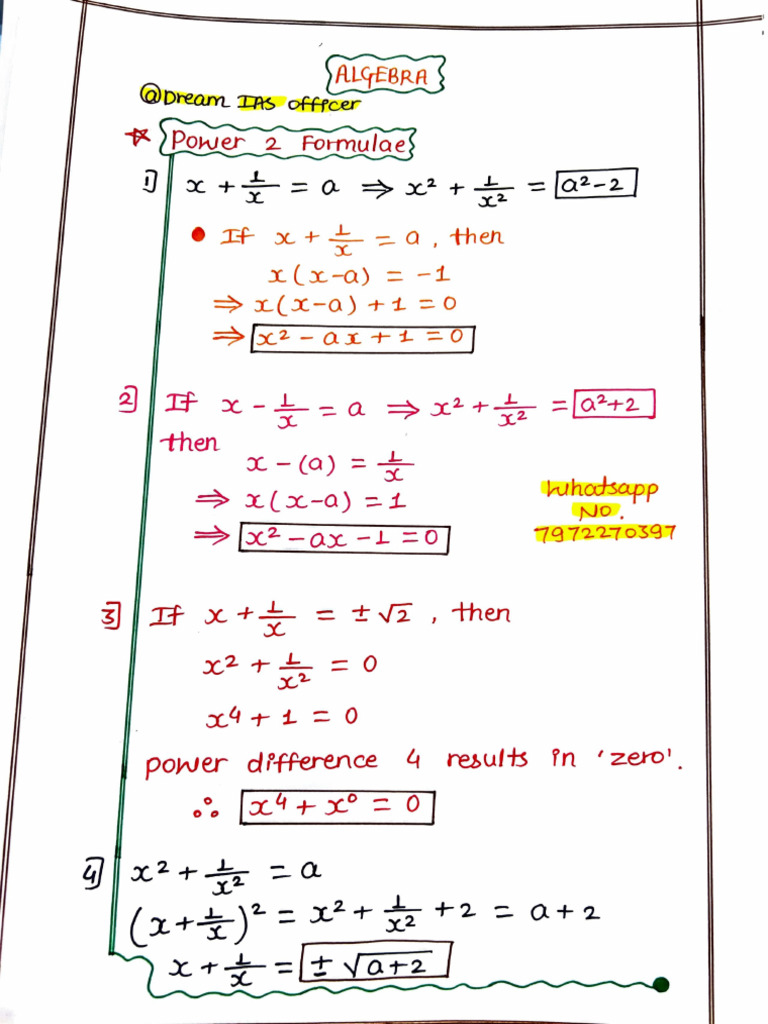 ALGEBRA
@Dream IAS officer
☆ Power 2 Formulae
1) x + 1/x = a ⇒ x² + 1/x² = a²-2
• If x + 1/x = a, then
x(x-a) = -1
⇒ x(x-a) + 1 = 0
⇒ x² - ax + 1 = 0
2] If x - 1/x = a ⇒ x² + 1/x² = a²+2
then
x - (a) = 1/x
⇒ x(x-a) = 1
⇒ x² - ax - 1 = 0
Whatsapp
No.
7972270397
3] If x + 1/x = ± √2, then
x² + 1/x² = 0
x⁴ + 1 = 0
power difference 4 results in 'zero'.
∴ x⁴ + x⁰ = 0
4] x² + 1/x² = a
(x + 1/x)² = x² + 1/x² + 2 = a + 2
x + 1/x = ± √a+2